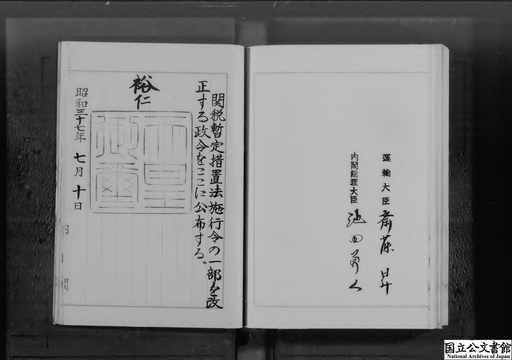 運輸大臣 斎藤昇
内閣総理大臣 池田勇人
関税暫定措置法施行令の一部を改
正する政令をここに公布する。
裕仁
天皇
御璽
昭和三十七年 七月 十日
国立公文書館
National Archives of Japan